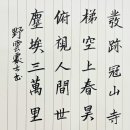 發跡冠山寺
梯空上春昊
俯視人間世
塵埃三萬里